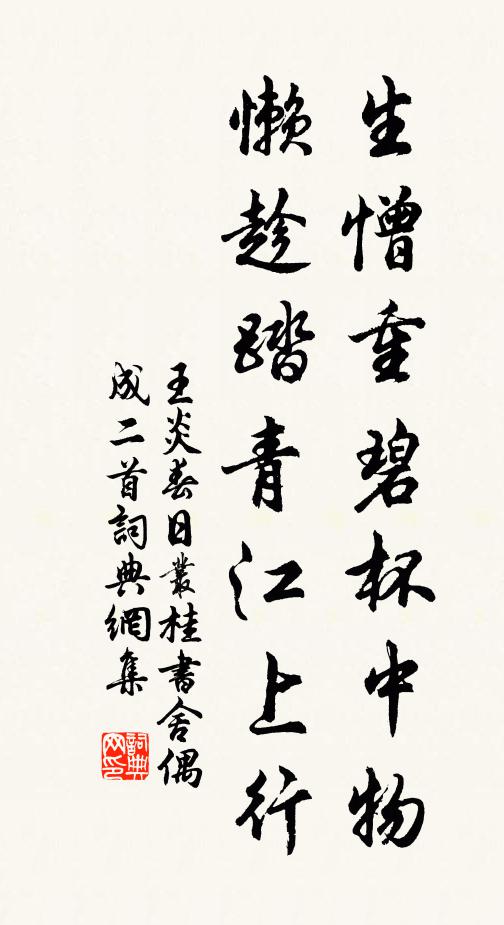 生憎重碧杯中物
懶趁踏青江上行
王炎春日叢桂書舍偶
成二首詞典網集
詞典
网印